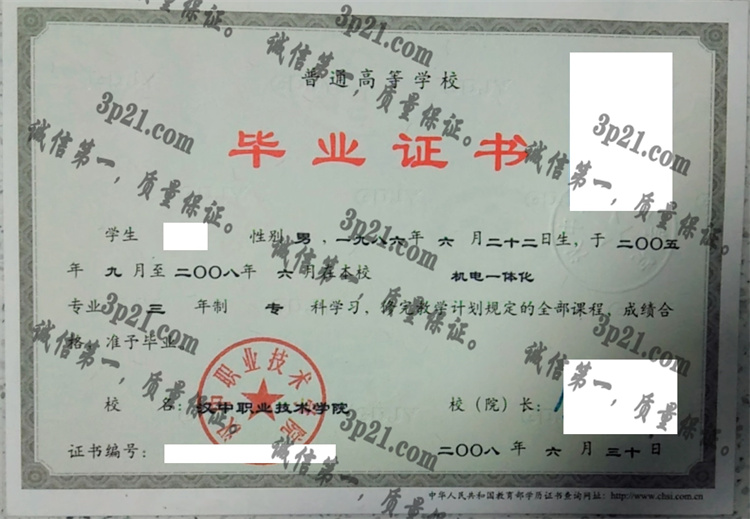 普通高等学校
毕业证书
学生 性别 男，一九八六年 六 月二十二日生，于 二〇〇五
年 九 月至 二〇〇八年 六 月在本校 机电一体化
专业 三 年制 专 科学习，修完教学计划规定的全部课程，成绩合
格，准予毕业
校 名：汉中职业技术学院 校（院）长：
证书编号： 二〇〇八 年 六 月 三十日
中华人民共和国教育部学历证书查询网址：http://www.chsi.com.cn
汉中职业技术学院
3p21.com
诚信第一，质量保证。
3p21.com
诚信第一，质量保证。
3p21.com
诚信第一，质量保证。
3p21.com
诚信第一，质量保证。
3p21.com
诚信第一，质量保证。
3p21.com
诚信第一，质量保证。
3p21.com
诚信第一，质量保证。
3p21.com
诚信第一，质量保证。